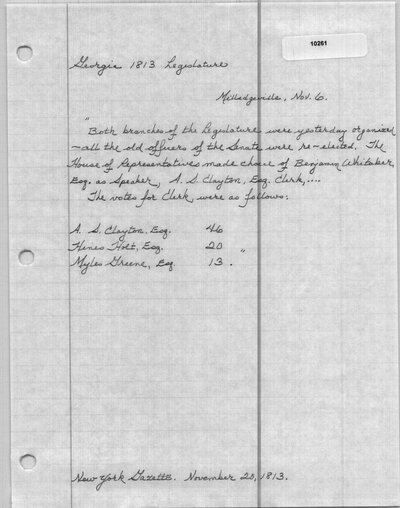 10261
Georgia 1813 Legislature
Milledgeville, Nov. 6.
"Both branches of the Legislature were yesterday organized
—all the old officers of the Senate were re-elected. The
House of Representatives made choice of Benjamin Whitaker,
Esq. as Speaker, A. S. Clayton, Esq. Clerk,....
The votes for Clerk were as follows:
A. S. Clayton, Esq. 46
Hines Holt, Esq. 20 "
Myles Greene, Esq 13.
New York Gazette. November 20, 1813.